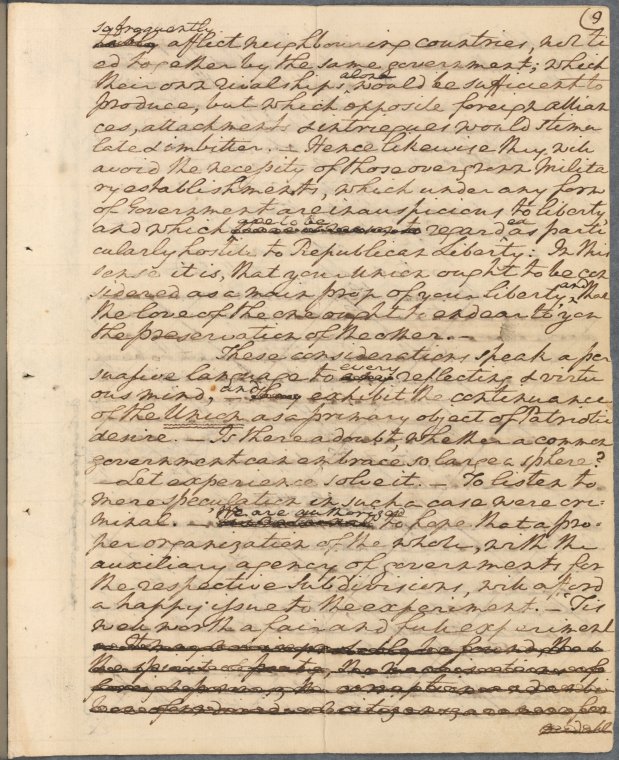 (9
so frequently
affect neighbouring countries, not ti
ed together by the same government; which
their own rivalships alone would be sufficient to
produce, but which opposite foreign allian
ces, attachments & intriegues would stimu
late & imbitter. — Hence likewise they will
avoid the necessity of those overgrown Milita
ry establishments, which under any form
of Government are inauspicious to liberty,
and which are to be regarded as parti
cularly hostile to Republican Liberty: In this
sense it is, that your Union ought to be con
sidered as a main prop of your liberty, and that
the love of the one ought to endear to you
the preservation of the other. —
These considerations speak a per
suasive language to every reflecting & virtu
ous mind, — and exhibit the continuance
of the Union as a primary object of Patriotic
desire. — Is there a doubt, whether a common
government can embrace so large a sphere?
— Let experience solve it. — To listen to
mere speculation in such a case were cri
minal. — We are authorized to hope that a pro-
per organization of the whole, with the
auxiliary agency of governments for
the respective Subdivisions, will afford
a happy issue to the experiment. — 'Tis
well worth a fair and full experiment